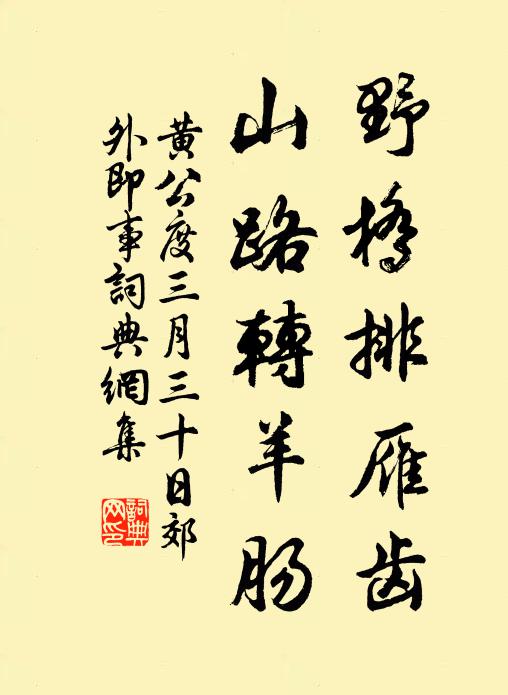 野橋排雁齿
山路轉羊肠
黄公度三月三十日郊
外即事詞典網集
詞典
网印